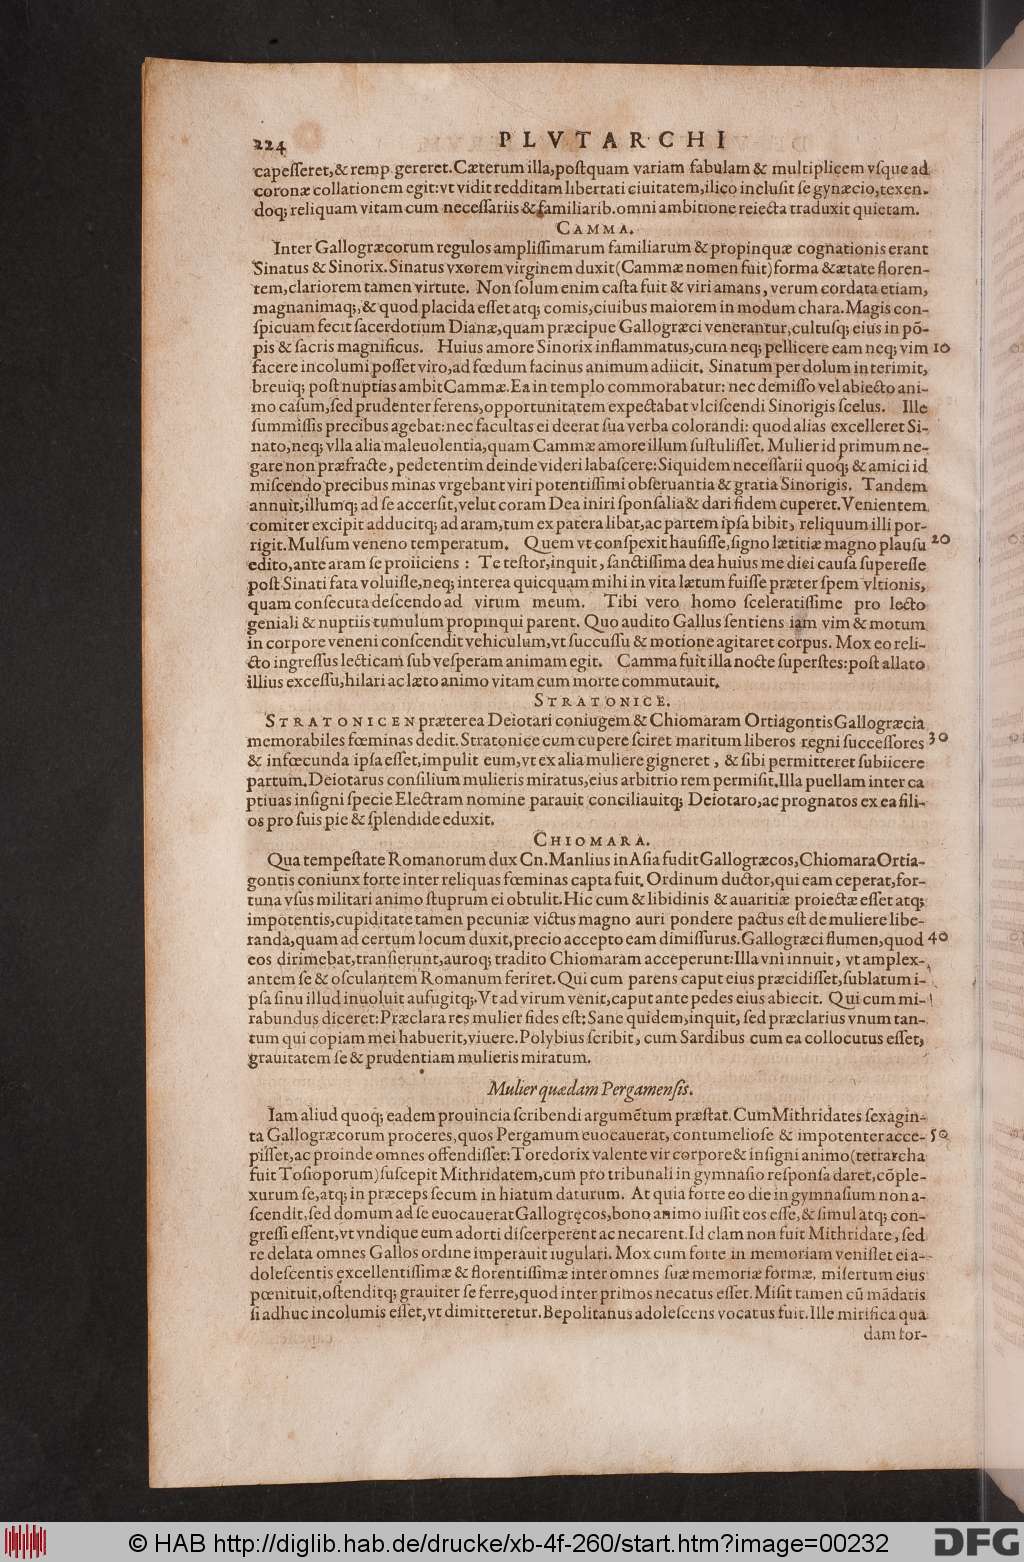 224 PLVTARCHI
capeſſeret,& remp gereret. Cæterum illa,poſtquam variam fabulam & multiplicem vſque ad
coronæ collationem egit:vt vidit redditam libertati ciuitatem,ilico incluſit ſe gynæcio,texen-
doq; reliquam vitam cum neceſſariis & familiarib. omni ambitione reiecta traduxit quietam.
CAMMA.
Inter Gallogræcorum regulos ampliſſimarum familiarum & propinquæ cognationis erant
Sinatus & Sinorix. Sinatus vxorem virginem duxit (Cammæ nomen fuit) forma & ætate floren-
tem,clariorem tamen virtute. Non ſolum enim caſta fuit & viri amans, verum cordata etiam,
magnanimaq;,& quod placida eſſet atq; comis,ciuibus maiorem in modum chara. Magis con-
ſpicuam fecit ſacerdotium Dianæ,quam præcipue Gallogræci venerantur,cultuſq; eius in põ-
pis & ſacris magnificus. Huius amore Sinorix inflammatus,cum neq; pellicere eam neq; vim 10
facere incolumi poſſet viro,ad fœdum facinus animum adiicit. Sinatum per dolum interimit,
breuiq; poſt nuptias ambit Cammæ. Ea in templo commorabatur: nec demiſſo vel abiecto ani-
mo caſum,ſed prudenter ferens,opportunitatem expectabat vlciſcendi Sinorigis ſcelus. Ille
ſummiſſis precibus agebat:nec facultas ei deerat ſua verba colorandi: quod alias excelleret Si-
nato,neq; vlla alia maleuolentia,quam Cammæ amore illum ſuſtuliſſet. Mulier id primum ne-
gare non præfracte, pedetentim deinde videri labaſcere: Siquidem neceſſarii quoq; & amici id
miſcendo precibus minas vrgebant viri potentiſſimi obſeruantia & gratia Sinorigis. Tandem
annuit,illumq; ad ſe accerſit,velut coram Dea iniri ſponſalia & dari fidem cuperet. Venientem
comiter excipit adducitq; ad aram,tum ex patera libat,ac partem ipſa bibit, reliquum illi por-
rigit. Mulſum veneno temperatum. Quem vt conſpexit hauſiſſe,ſigno lætitiæ magno plauſu 20
edito,ante aram ſe proiiciens : Te teſtor,inquit, ſanctiſſima dea huius me diei cauſa ſupereſſe
poſt Sinati fata voluiſſe,neq; interea quicquam mihi in vita lætum fuiſſe præter ſpem vltionis,
quam conſecuta deſcendo ad virum meum. Tibi vero homo ſceleratiſſime pro lecto
geniali & nuptiis tumulum propinqui parent. Quo audito Gallus ſentiens iam vim & motum
in corpore veneni conſcendit vehiculum,vt ſuccuſſu & motione agitaret corpus. Mox eo reli-
cto ingreſſus lecticam ſub veſperam animam egit. Camma fuit illa nocte ſuperſtes: poſt allato
illius exceſſu,hilari ac læto animo vitam cum morte commutauit.
STRATONICE.
STRATONICEN præterea Deiotari coniugem & Chiomaram Ortiagontis Gallogræcia
memorabiles fœminas dedit. Stratonice cum cupere ſciret maritum liberos regni ſucceſſores 30
& infœcunda ipſa eſſet,impulit eum,vt ex alia muliere gigneret, & ſibi permitteret ſubiicere
partum. Deiotarus conſilium mulieris miratus,eius arbitrio rem permiſit. Illa puellam inter ca
ptiuas inſigni ſpecie Electram nomine parauit conciliauitq; Deiotaro,ac prognatos ex ea fili-
os pro ſuis pie & ſplendide eduxit.
CHIOMARA.
Qua tempeſtate Romanorum dux Cn. Manlius in Aſia fudit Gallogræcos, Chiomara Ortia-
gontis coniunx forte inter reliquas fœminas capta fuit. Ordinum ductor,qui eam ceperat,for-
tuna vſus militari animo ſtuprum ei obtulit. Hic cum & libidinis & auaritiæ proiectæ eſſet atq;
impotentis,cupiditate tamen pecuniæ victus magno auri pondere pactus eſt de muliere libe-
randa,quam ad certum locum duxit,precio accepto eam dimiſſurus. Gallogræci flumen,quod 40
eos dirimebat,tranſierunt,auroq; tradito Chiomaram acceperunt: Illa vni innuit, vt amplex-
antem ſe & oſculantem Romanum feriret. Qui cum parens caput eius præcidiſſet,ſublatum i-
pſa ſinu illud inuoluit aufugitq;. Vt ad virum venit,caput ante pedes eius abiecit. Qui cum mi-
rabundus diceret: Præclara res mulier fides eſt: Sane quidem,inquit, ſed præclarius vnum tan-
tum qui copiam mei habuerit,viuere. Polybius ſcribit, cum Sardibus cum ea collocutus eſſet,
grauitatem ſe & prudentiam mulieris miratum.
Mulier quædam Pergamenſis.
Iam aliud quoq; eadem prouincia ſcribendi argumẽtum præſtat. Cum Mithridates ſexagin-
ta Gallogræcorum proceres,quos Pergamum euocauerat, contumelioſe & impotenter acce- 50
piſſet,ac proinde omnes offendiſſet: Toredorix valente vir corpore & inſigni animo (tetrarcha
fuit Toſioporum) ſuſcepit Mithridatem,cum pro tribunali in gymnaſio reſponſa daret,cõple-
xurum ſe,atq; in præceps ſecum in hiatum daturum. At quia forte eo die in gymnaſium non a-
ſcendit,ſed domum ad ſe euocauerat Gallogręcos,bono animo iuſſit eos eſſe,& ſimul atq; con-
greſſi eſſent,vt vndique eum adorti diſcerperent ac necarent. Id clam non fuit Mithridate, ſed
re delata omnes Gallos ordine imperauit iugulari. Mox cum forte in memoriam veniſſet ei a-
doleſcentis excellentiſſimæ & florentiſſimæ inter omnes ſuæ memoriæ formæ, miſertum eius
pœnituit,oſtenditq; grauiter ſe ferre,quod inter primos necatus eſſet. Miſit tamen cũ mãdatis
ſi adhuc incolumis eſſet,vt dimitteretur. Bepolitanus adoleſcens vocatus fuit. Ille mirifica qua
dam for-
© HAB http://diglib.hab.de/drucke/xb-4f-260/start.htm?image=00232 DFG